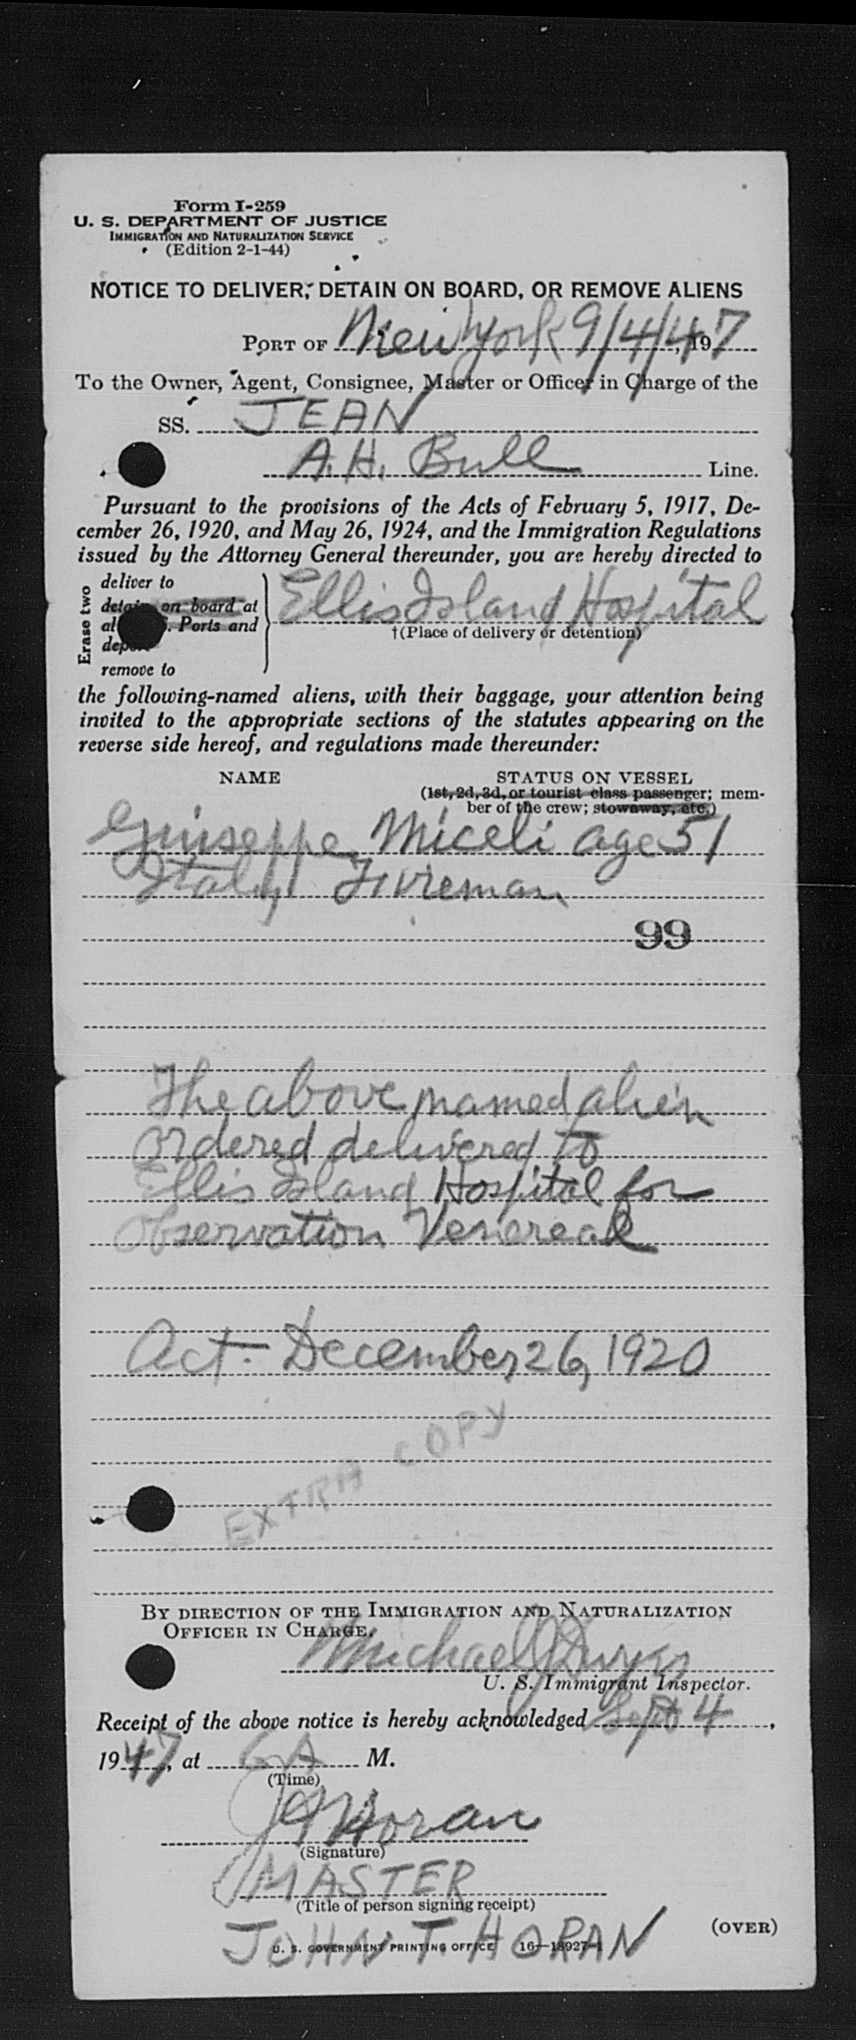 Form I-259
U. S. DEPARTMENT OF JUSTICE
IMMIGRATION AND NATURALIZATION SERVICE
(Edition 2-1-44)
NOTICE TO DELIVER, DETAIN ON BOARD, OR REMOVE ALIENS
PORT OF New York 9/4/47, 197
To the Owner, Agent, Consignee, Master or Officer in Charge of the
SS. JEAN
A.H. Bull Line.
Pursuant to the provisions of the Acts of February 5, 1917, De-
cember 26, 1920, and May 26, 1924, and the Immigration Regulations
issued by the Attorney General thereunder, you are hereby directed to
Erase two
deliver to
detain on board at
al S. Ports and
deport
remove to
Ellis Island Hospital
†(Place of delivery or detention)
the following-named aliens, with their baggage, your attention being
invited to the appropriate sections of the statutes appearing on the
reverse side hereof, and regulations made thereunder:
NAME STATUS ON VESSEL
(1st, 2d, 3d, or tourist class passenger; mem-
ber of the crew; stowaway, etc.)
Giuseppe Miceli age 51
Italy Fireman
99
The above named alien
ordered delivered to
Ellis Island Hospital for
observation Venereal
Act. December 26, 1920
EXTRA COPY
BY DIRECTION OF THE IMMIGRATION AND NATURALIZATION
OFFICER IN CHARGE.
Michael J
U. S. Immigrant Inspector.
Receipt of the above notice is hereby acknowledged Sept 4,
1947, at 6 A M.
(Time)
J T Horan
(Signature)
MASTER
(Title of person signing receipt)
JOHN T. HORAN
(OVER)
U. S. GOVERNMENT PRINTING OFFICE 16—18927-1